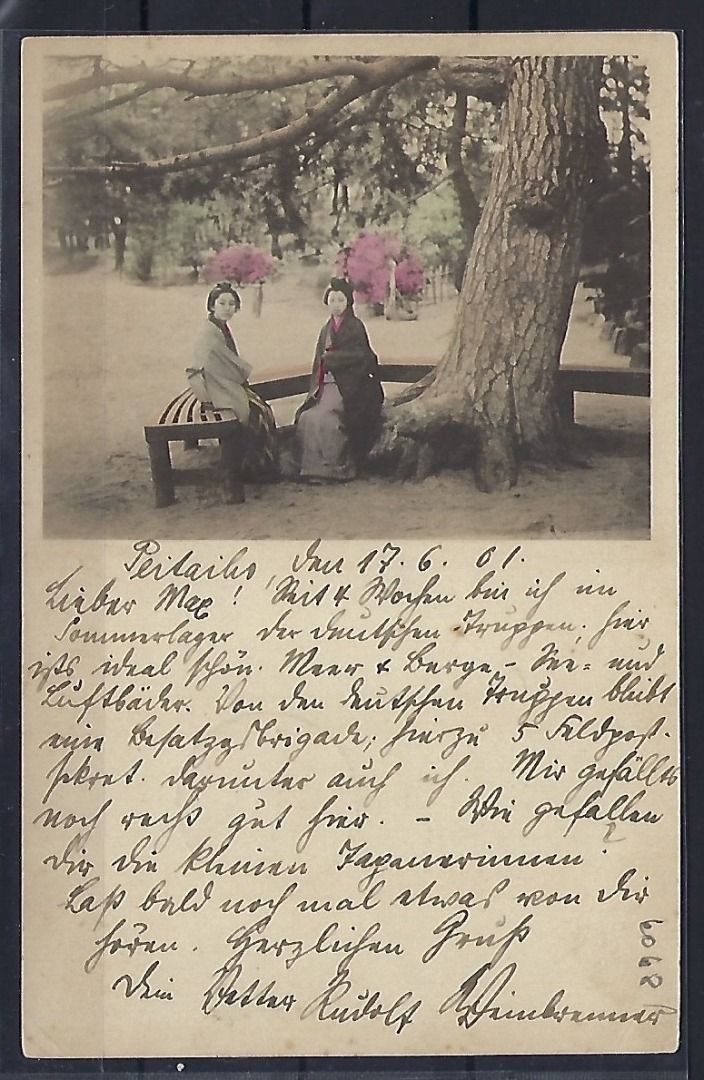 Peitaiho, den 17. 6. 01.
Lieber Max! Seit 4 Wochen bin ich im
Sommerlager der deutschen Truppen; hier
ists ideal schön. Meer & Berge, - See- und
Luftbäder. Von den deutschen Truppen bleibt
eine Besatzgsbrigade; hierzu 5 Feldpost-
sekret. darunter auch ich. Mir gefällts
noch recht gut hier. - Wie gefallen
dir die kleinen Japanerinnen?
Laß bald noch mal etwas von dir
hören. Herzlichen Gruß
Dein Vetter Rudolf Weinbrenner
6068